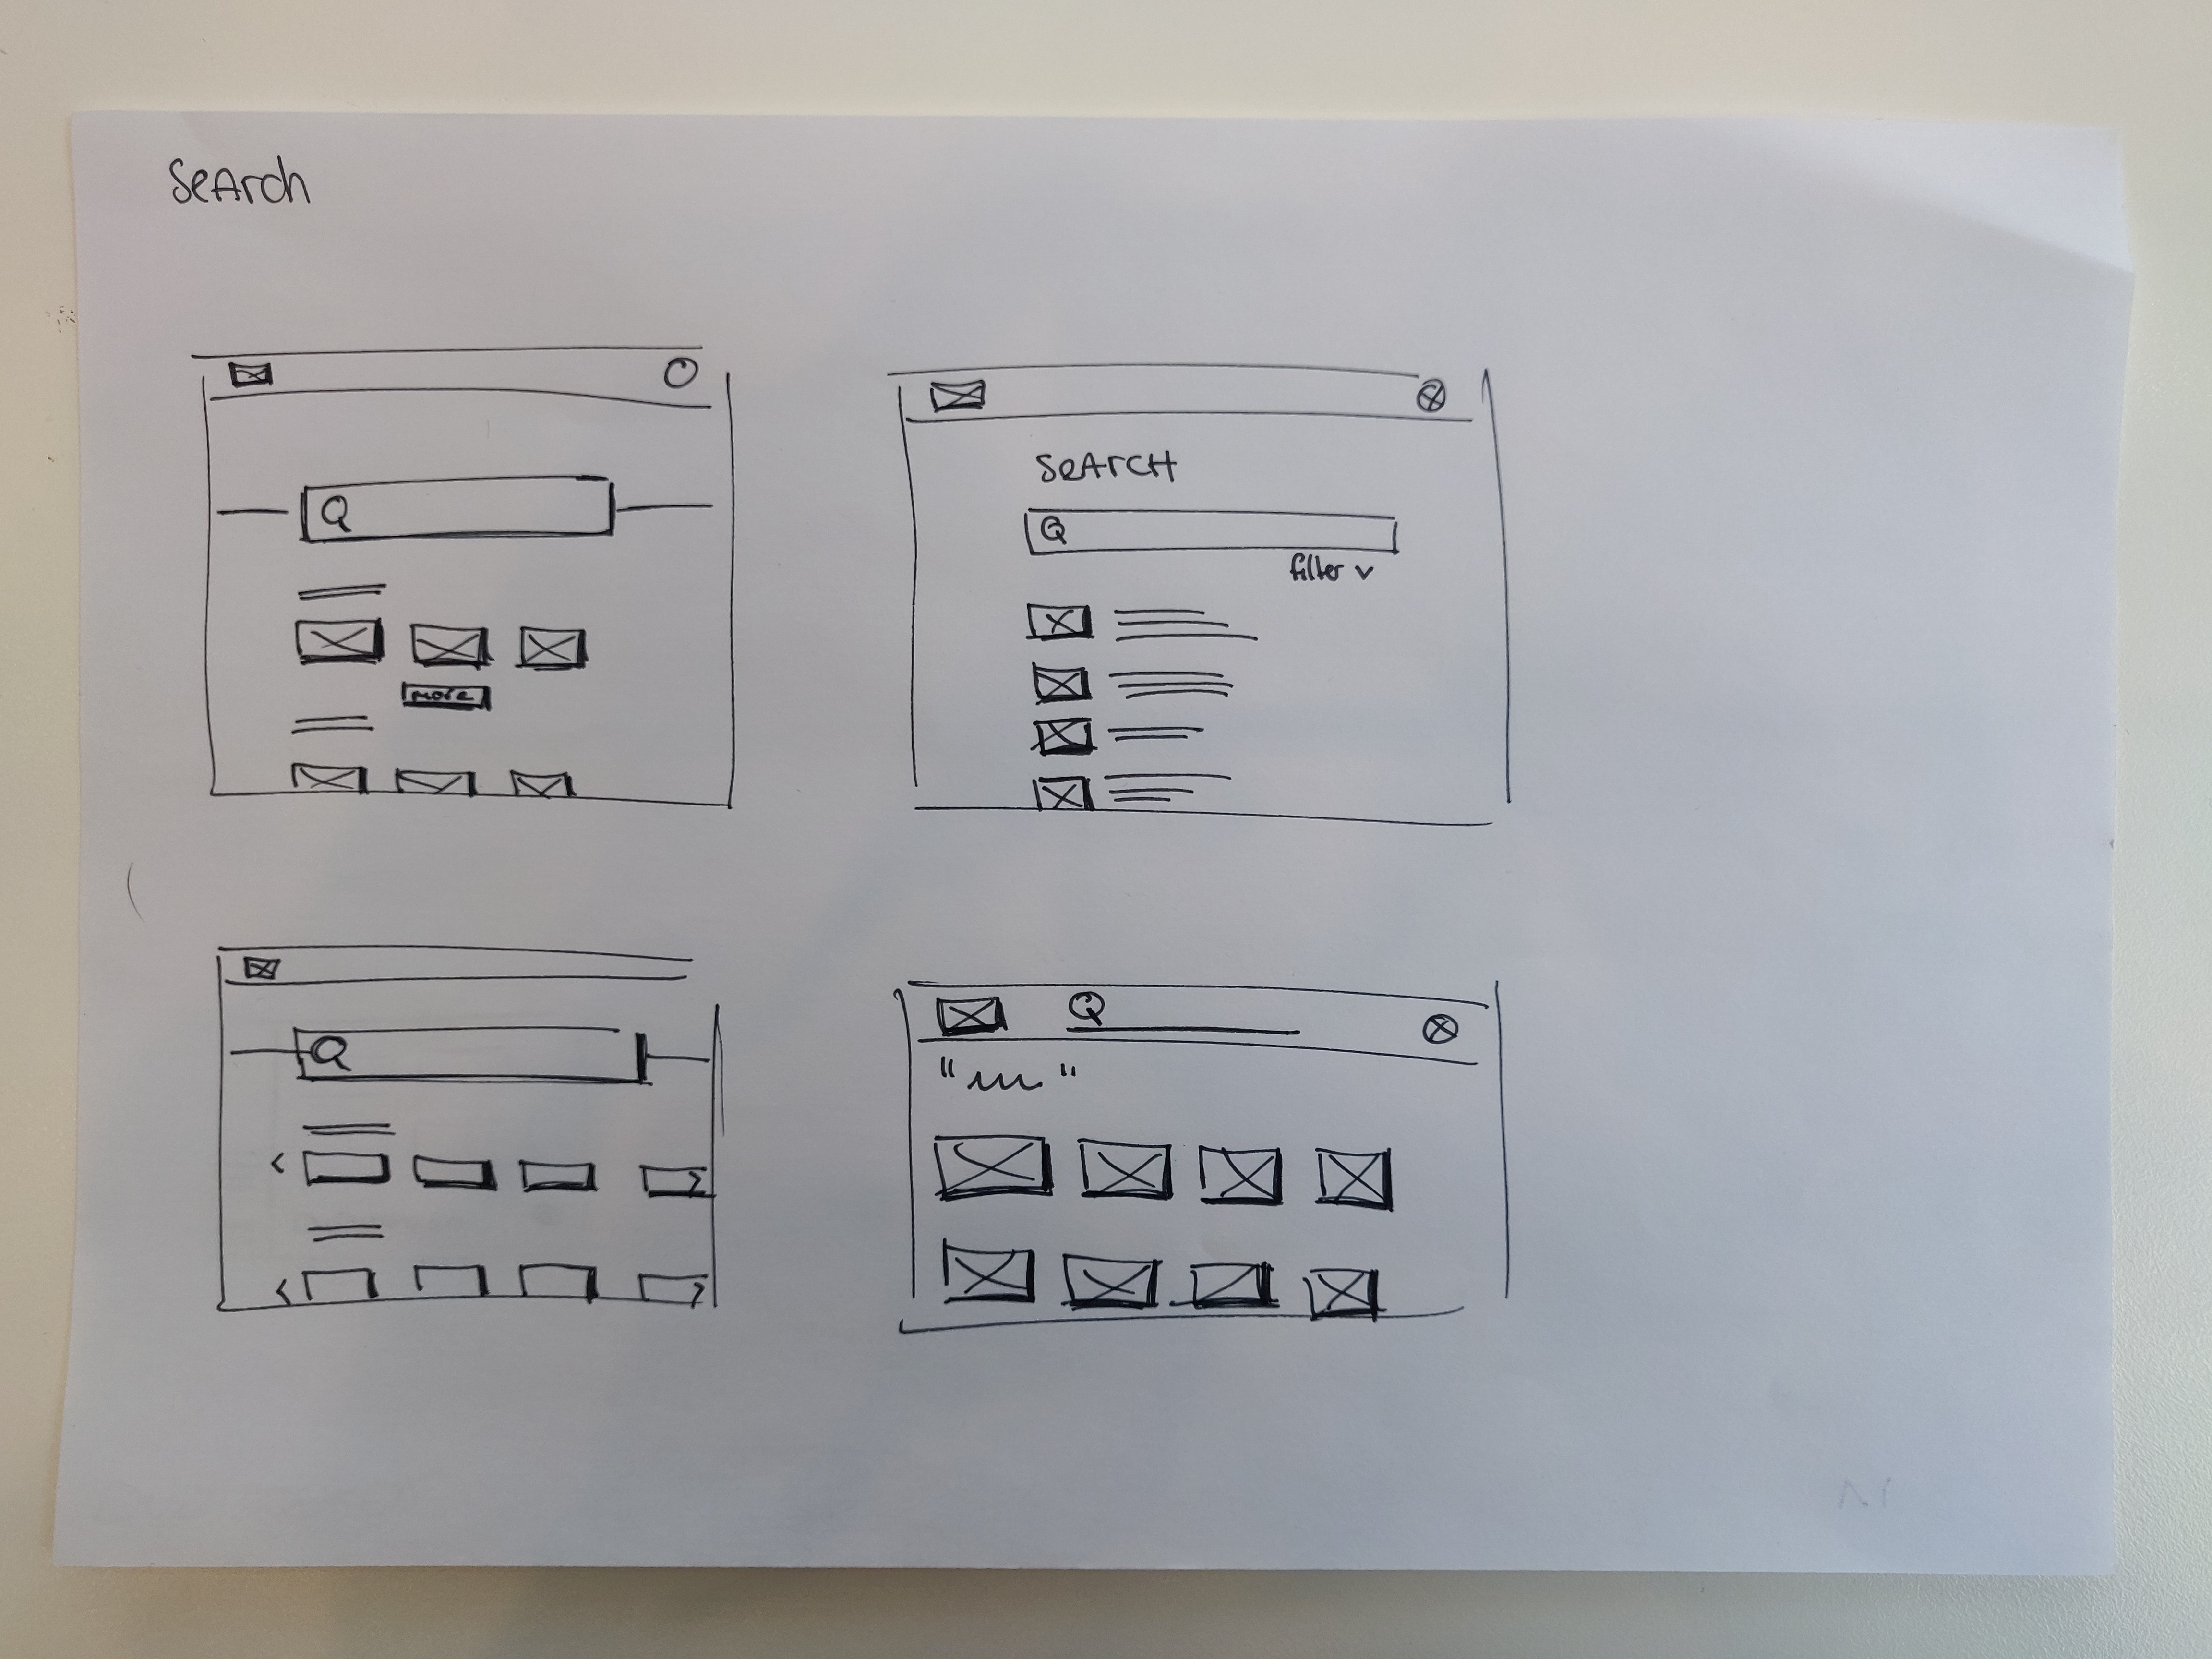 SeArch
more
SeArCH
filter v